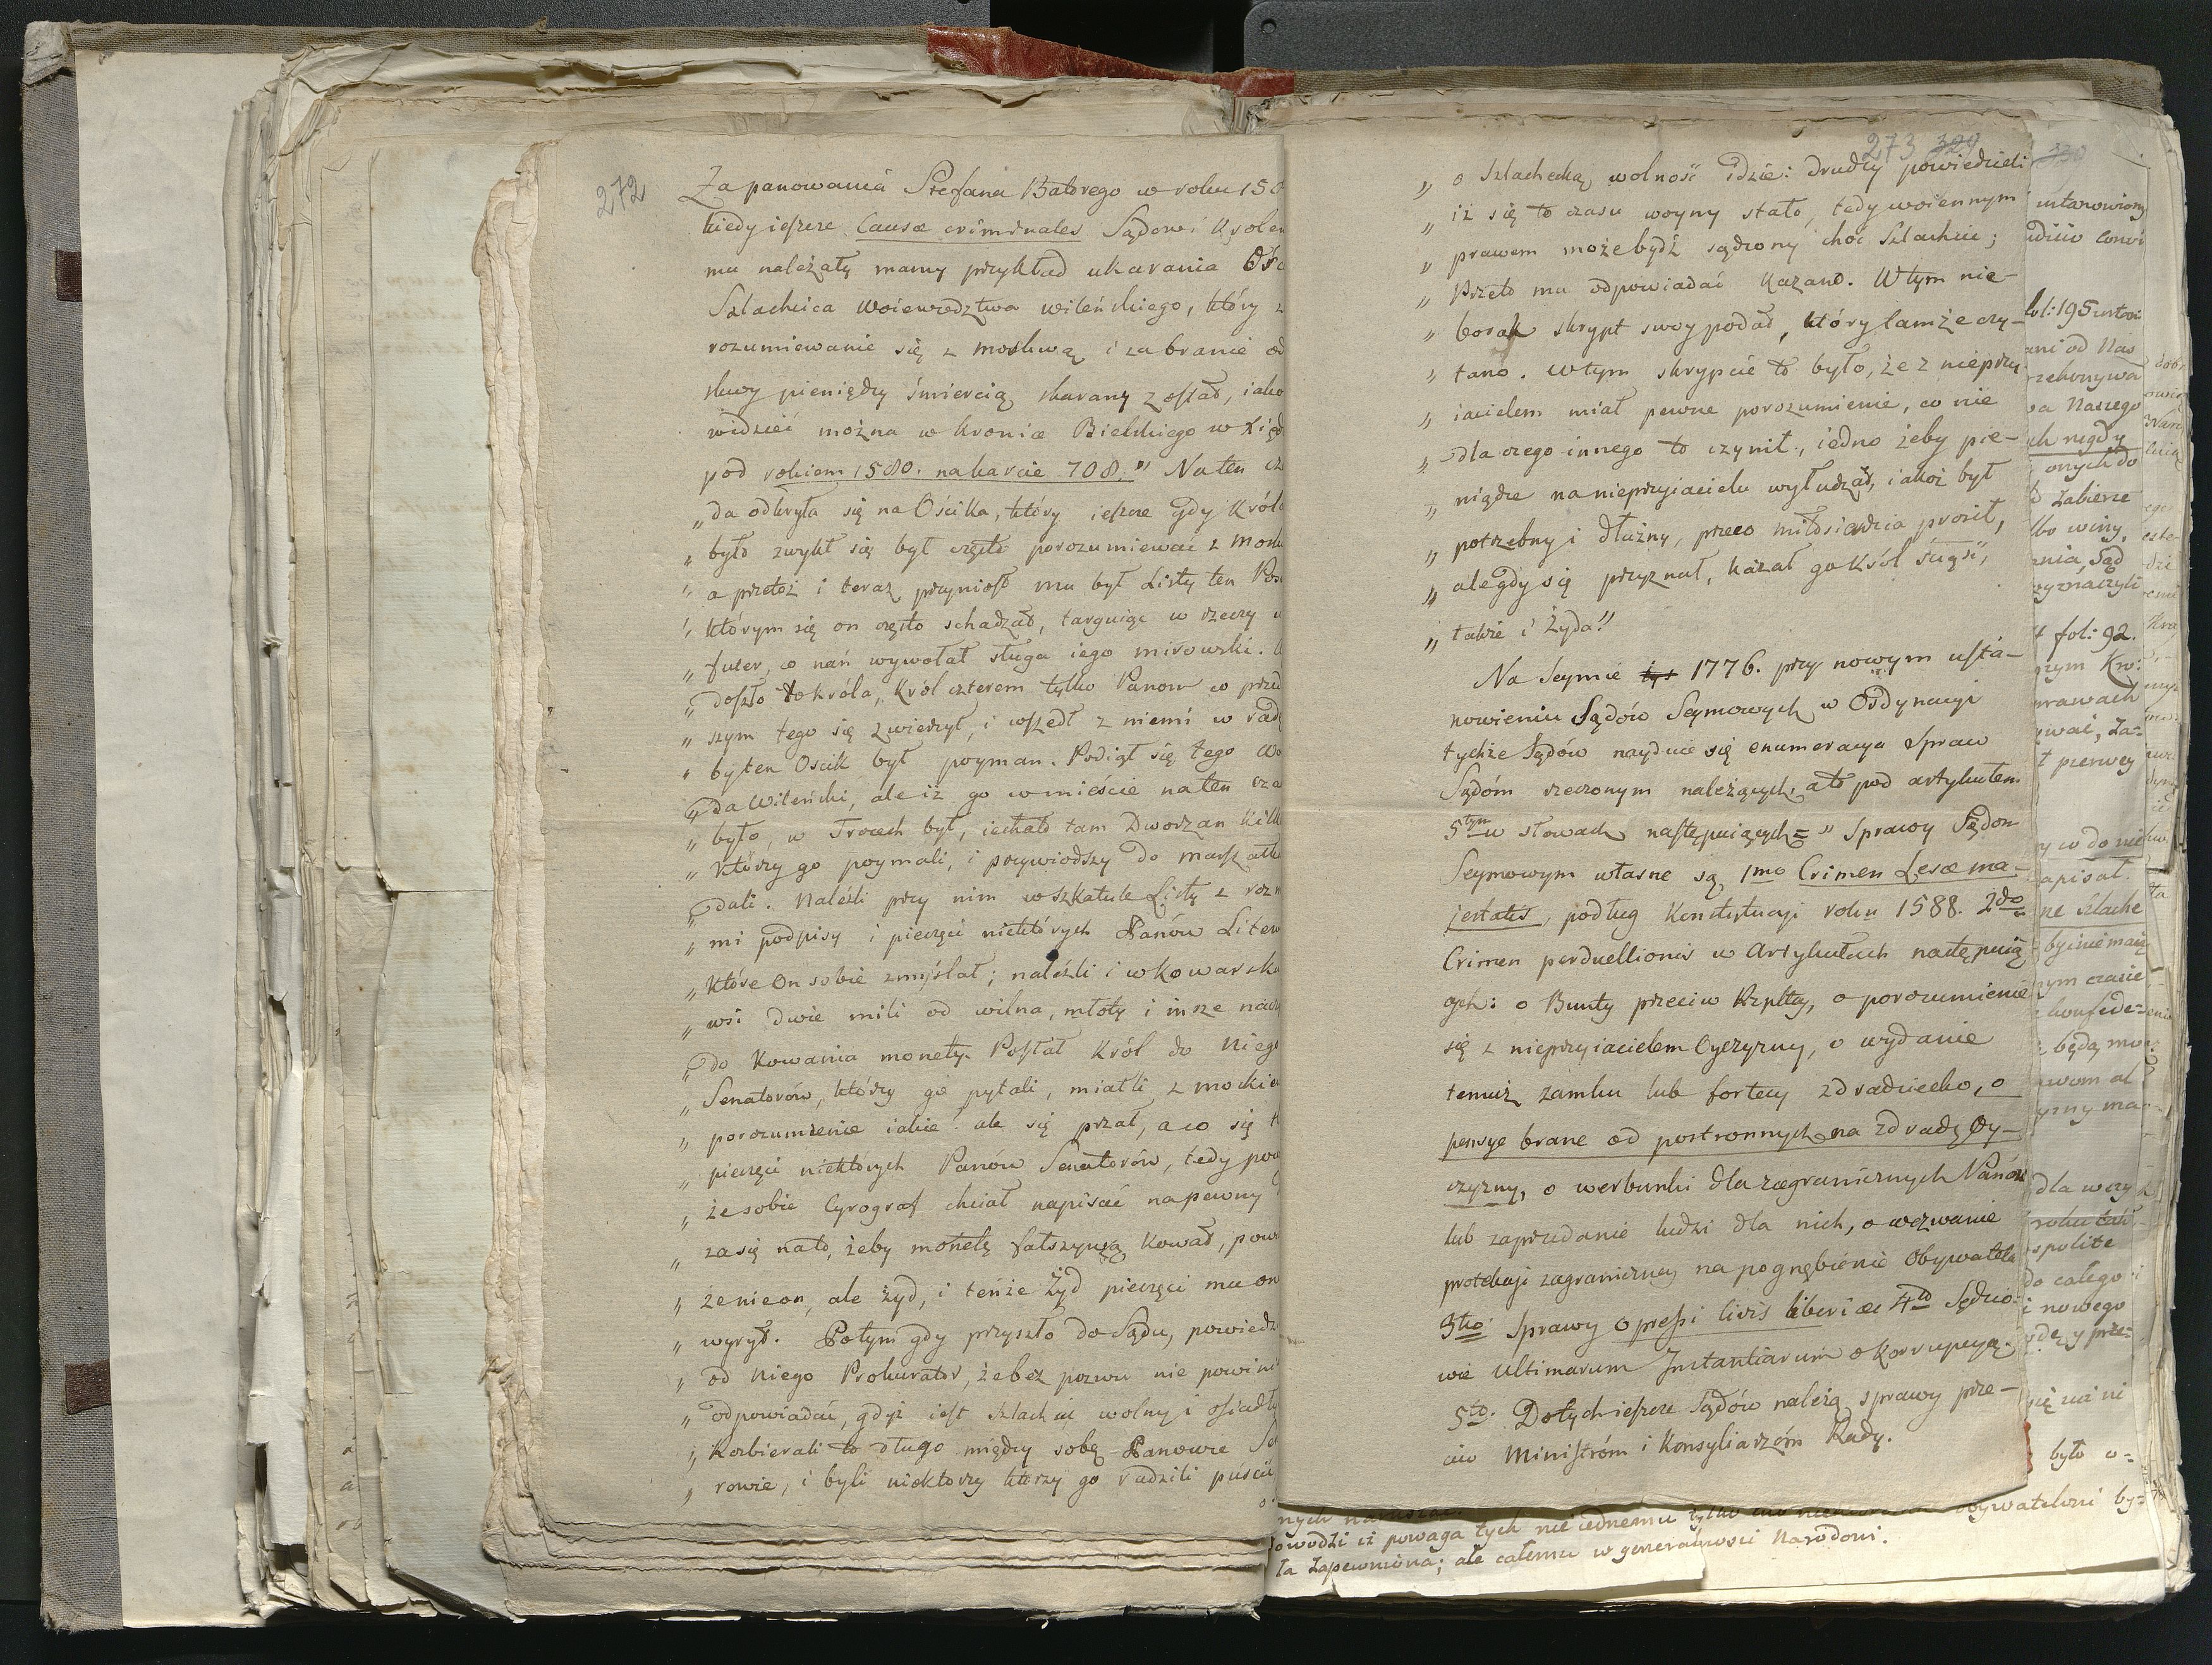 272
Za panowania Stefana Batorego w roku 158
kiedy ieszcze Causæ criminales Sądowi Krolew
mu należały mamy przykład ukarania Ości
Szlachcica Woiewodztwa wileńskiego, który z
rozumiewanie się z moskwą i zabranie od
skwy pieniędzy śmiercią skarany został, iako
widzieć można w kronice Bielskiego w Xięd
pod rokiem 1580. na karcie 708." Na ten cz
„ da odkryła się na Ościka, który ieszcze gdy Króla
„ było zwykł się był często porozumiewać z Mosk
„ a przetoż i teraz przyniosł mu był Listy ten Pos
„ którym się on często schadzał, targuiąc w rzeczy
„ futer, co nań wywołał sługa iego mirowski.
„ doszło to króla, Król czterem tylko Panom co przed
„ szym tego się zwierzył, i wszedł z niemi w radę
„ by ten Oscik był poyman. Podiął się tego Wo
„ da Wileński, ale iż go w mieście na ten cza
„ było, w Trocech był, iechało tam Dworzan kilk
„ którzy go poymali, i przywiodszy do marszałk
„ dali. Naleźli przy nim w szkatule Listy z rozn
„ mi podpisy i pieczęci niektórych Panów Litew
„ które On sobie zmyślał; naleźli i w Kowarsk
„ wsi dwie mili od wilna, młoty i insze nacz
„ do kowania monety. Posłał Król do Niego
„ Senatorów, którzy go pytali, miałli z moskie
„ porozumienie iakie: ale się przał, a co się t
„ pieczęci niektórych Panów Senatorów, tedy pow
„ że sobie Cyrograf chciał napisać na pewny
„ za się na to, żeby monetę fałszywą kował, pow
„ że nie on, ale żyd, i tenże Żyd pieczęci mu on
„ wyrył. Potym gdy przyszło do Sądu, powiedz
„ od Niego Prokurator, że bez pozwu nie powini
„ odpowiadać, gdyż iest szlachcic wolny i osiadły
„ Rozbierali to długo między sobą Panowie Se
„ rowie, i byli niektorzy którzy go radzili puścić
273 329
„ o Szlachecką wolność idzie: drudzy powiedzieli
„ iż się to czasu woyny stało, tedy woiennym
„ prawem może bydź sądzony choć Szlachcic;
„ Przeto mu odpowiadać kazano. W tym nie-
„ borak skrypt swoy podał, który tamże czy-
„ tano. W tym skrypcie to było, że z nieprzy-
„ iacielem miał pewne porozumienie, co nie
„ dla czego innego to czynił, iedno żeby pie-
„ niądze na nieprzyiacielu wyłudzał, iakoż był
„ potrzebny i dłużny, przeco miłosierdzia prosił,
„ ale gdy się przyznał, kazał go Król ściąć,
„ także i Żyda"
Na Seymie 1776. przy nowym usta-
nowieniu Sądów Seymowych w Ordynacyi
tychże Sądów nayduie się enumeracya Spraw
Sądóm rzeczonym należących, a to pod artykułem
5tym w słowach następuiących = „ Sprawy Sądom
Seymowym własne są 1mo Crimen Lesæ ma-
jestatis, podług Konstytucyi roku 1588. 2do
Crimen perduellionis w Artykułach następuią
cych: o Bunty przeciw Rzpltey, o porozumienie
się z nieprzyiacielem Oyczyzny, o wydanie
temuż zamku lub fortecy zdradziecko, o
pensye brane od postronnych na zdradę Oy-
czyzny, o werbunki dla zagranicznych Panów
lub zaprzedanie ludzi dla nich, o wezwanie
protekcyi zagraniczney na pognębienie Obywatela
3tio Sprawy opressi civis liberi ac 4to Sędzio-
wie ultimarum Instantiarum o korrupcyą.
5to. Do tych ieszcze Sądów należą sprawy prze-
ciw Ministróm i Konsyliarzóm Rady.
330
ustanowiony
fol: 195
ani od Nas
wa Naszego
ch nigdy
onych do
Zabierze
lbo winy,
nia, Sąd
fol: 92.
prawach
pierwey
zapisał.
ne Szlache
być nie maią
nym czasie
konfede=
będą mo
dla wszy
roku
spolite
do całego
i nowego
było o=
owodzi iż powaga tych nie iednemu tylko obywatelowi by=
ła Zapewniona; ale całemu w generalności Narodowi.